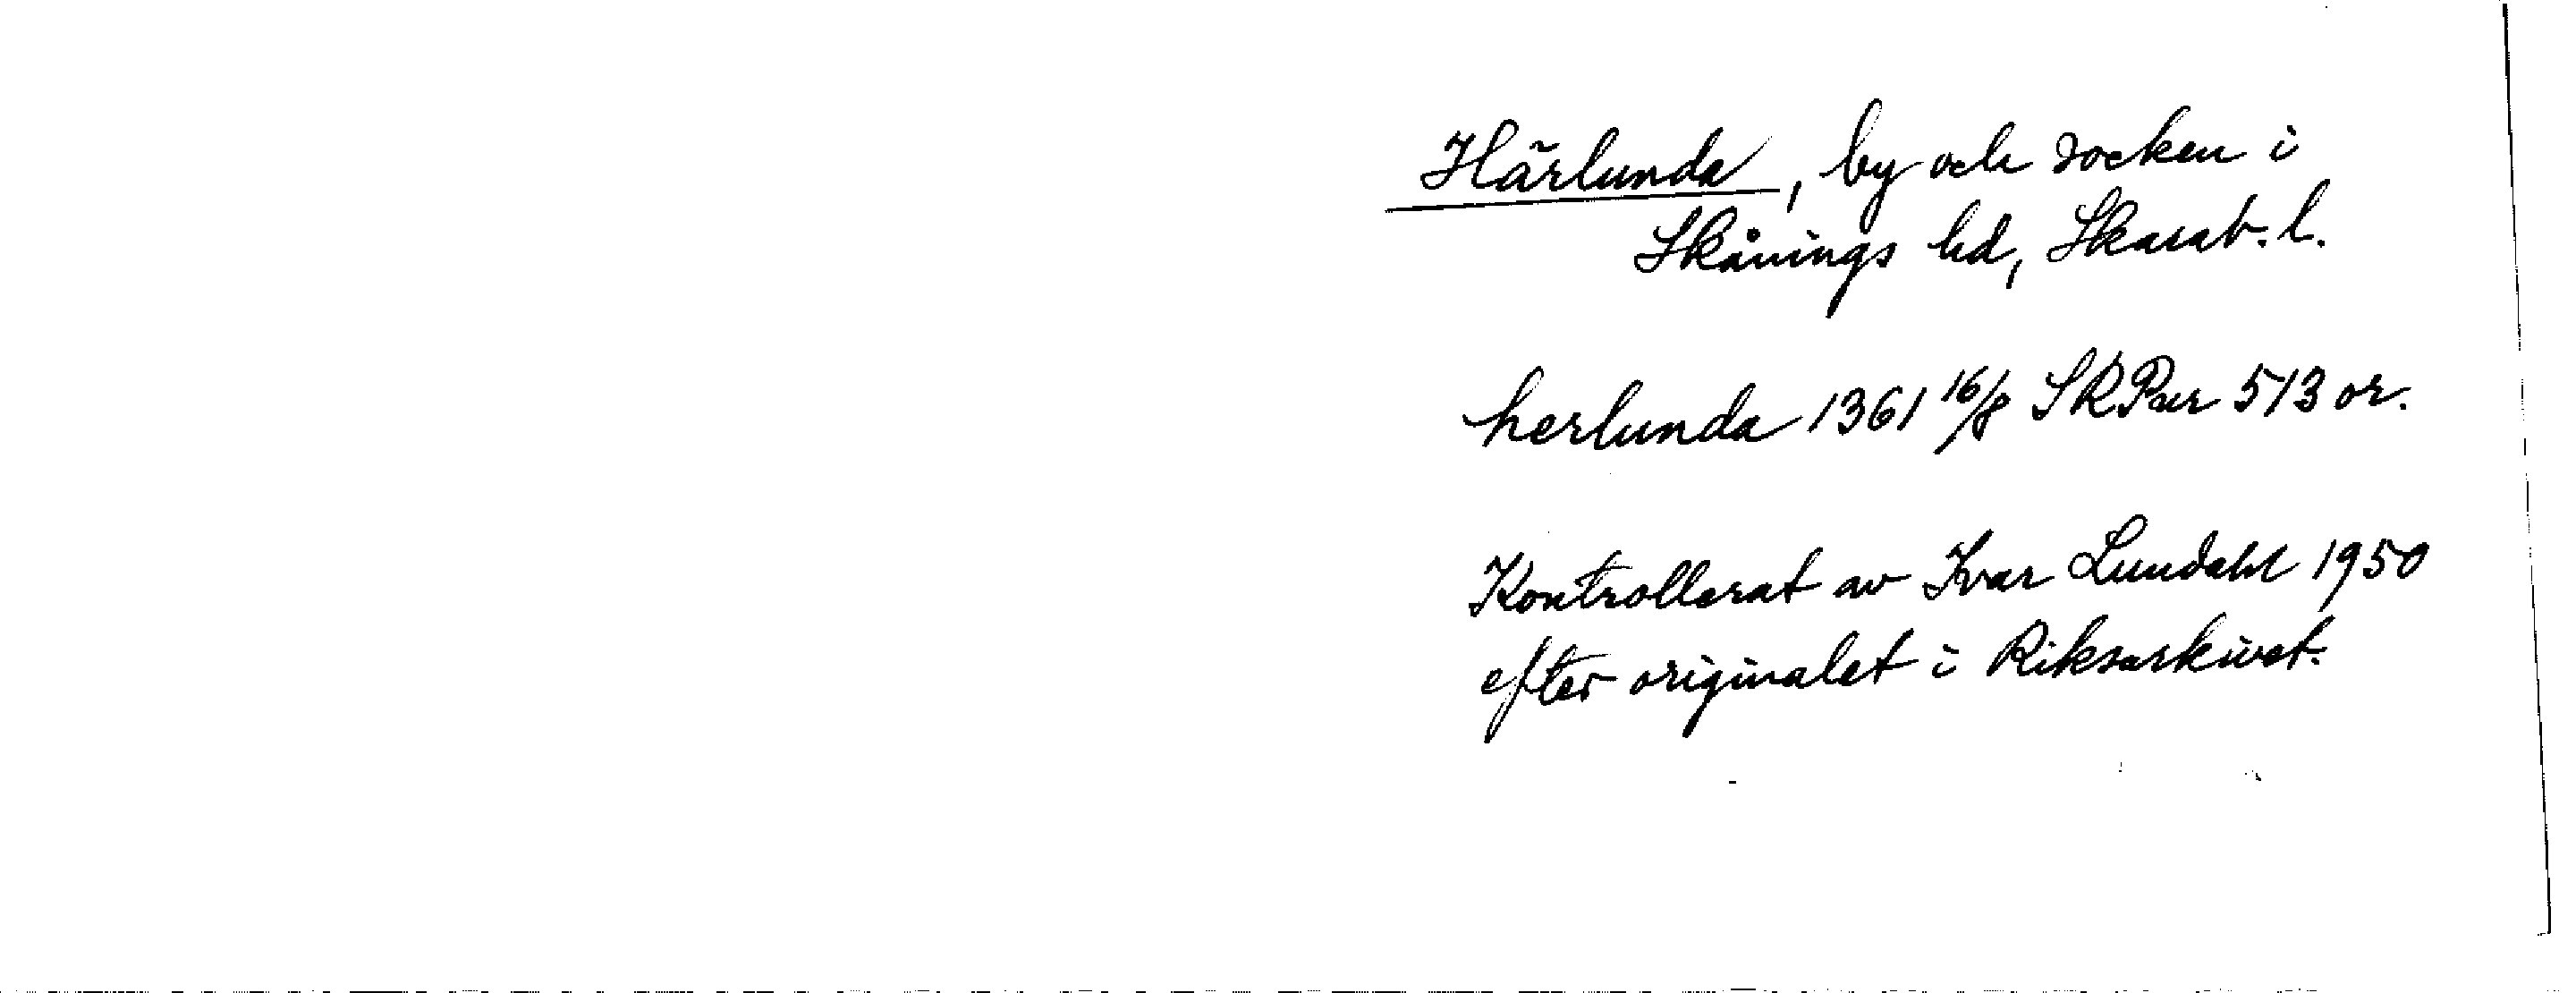 Härlunda, by och socken i
Skånings hd, Skarab. l.
herlunda 1361 16/8 SRPer 513 or.
Kontrollerat av Ivar Lundahl 1950
efter originalet i Riksarkivet.